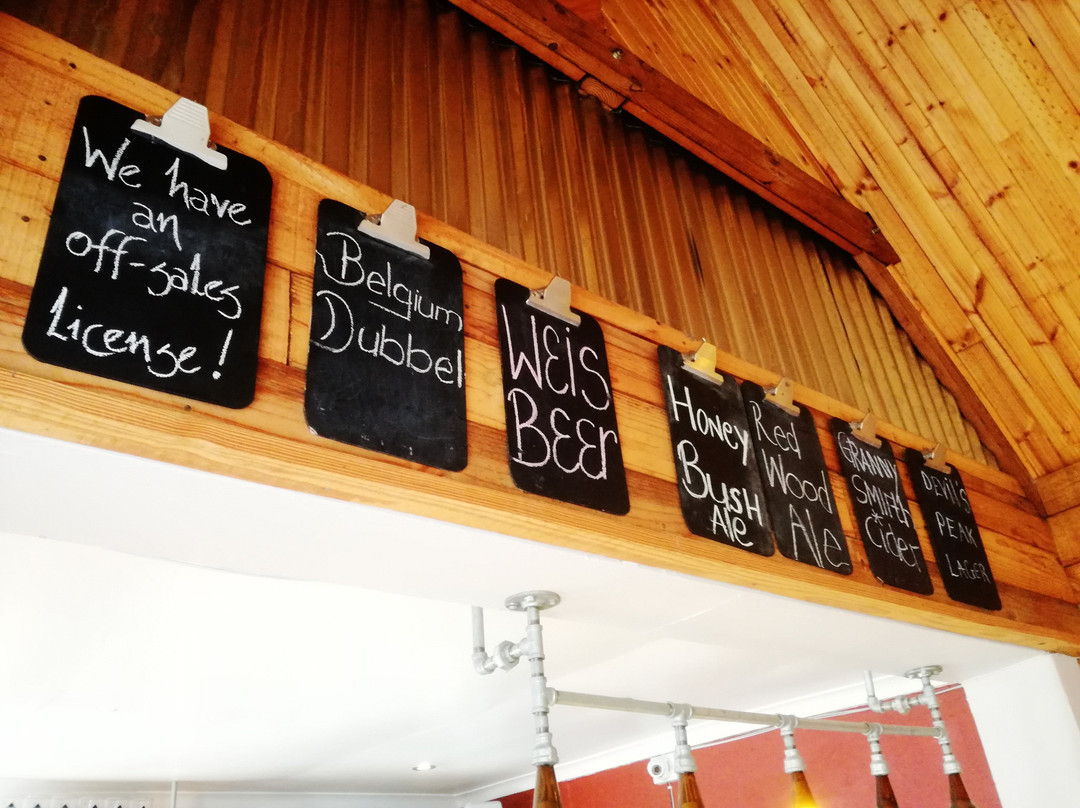 We have
an
off-sales
License!
Belgium
Dubbel
Weis
Beer
Honey
Bush
Ale
Red
Wood
Ale
GRANNY
SMITH
Cider
DEVIL'S
PEAK
LAGER